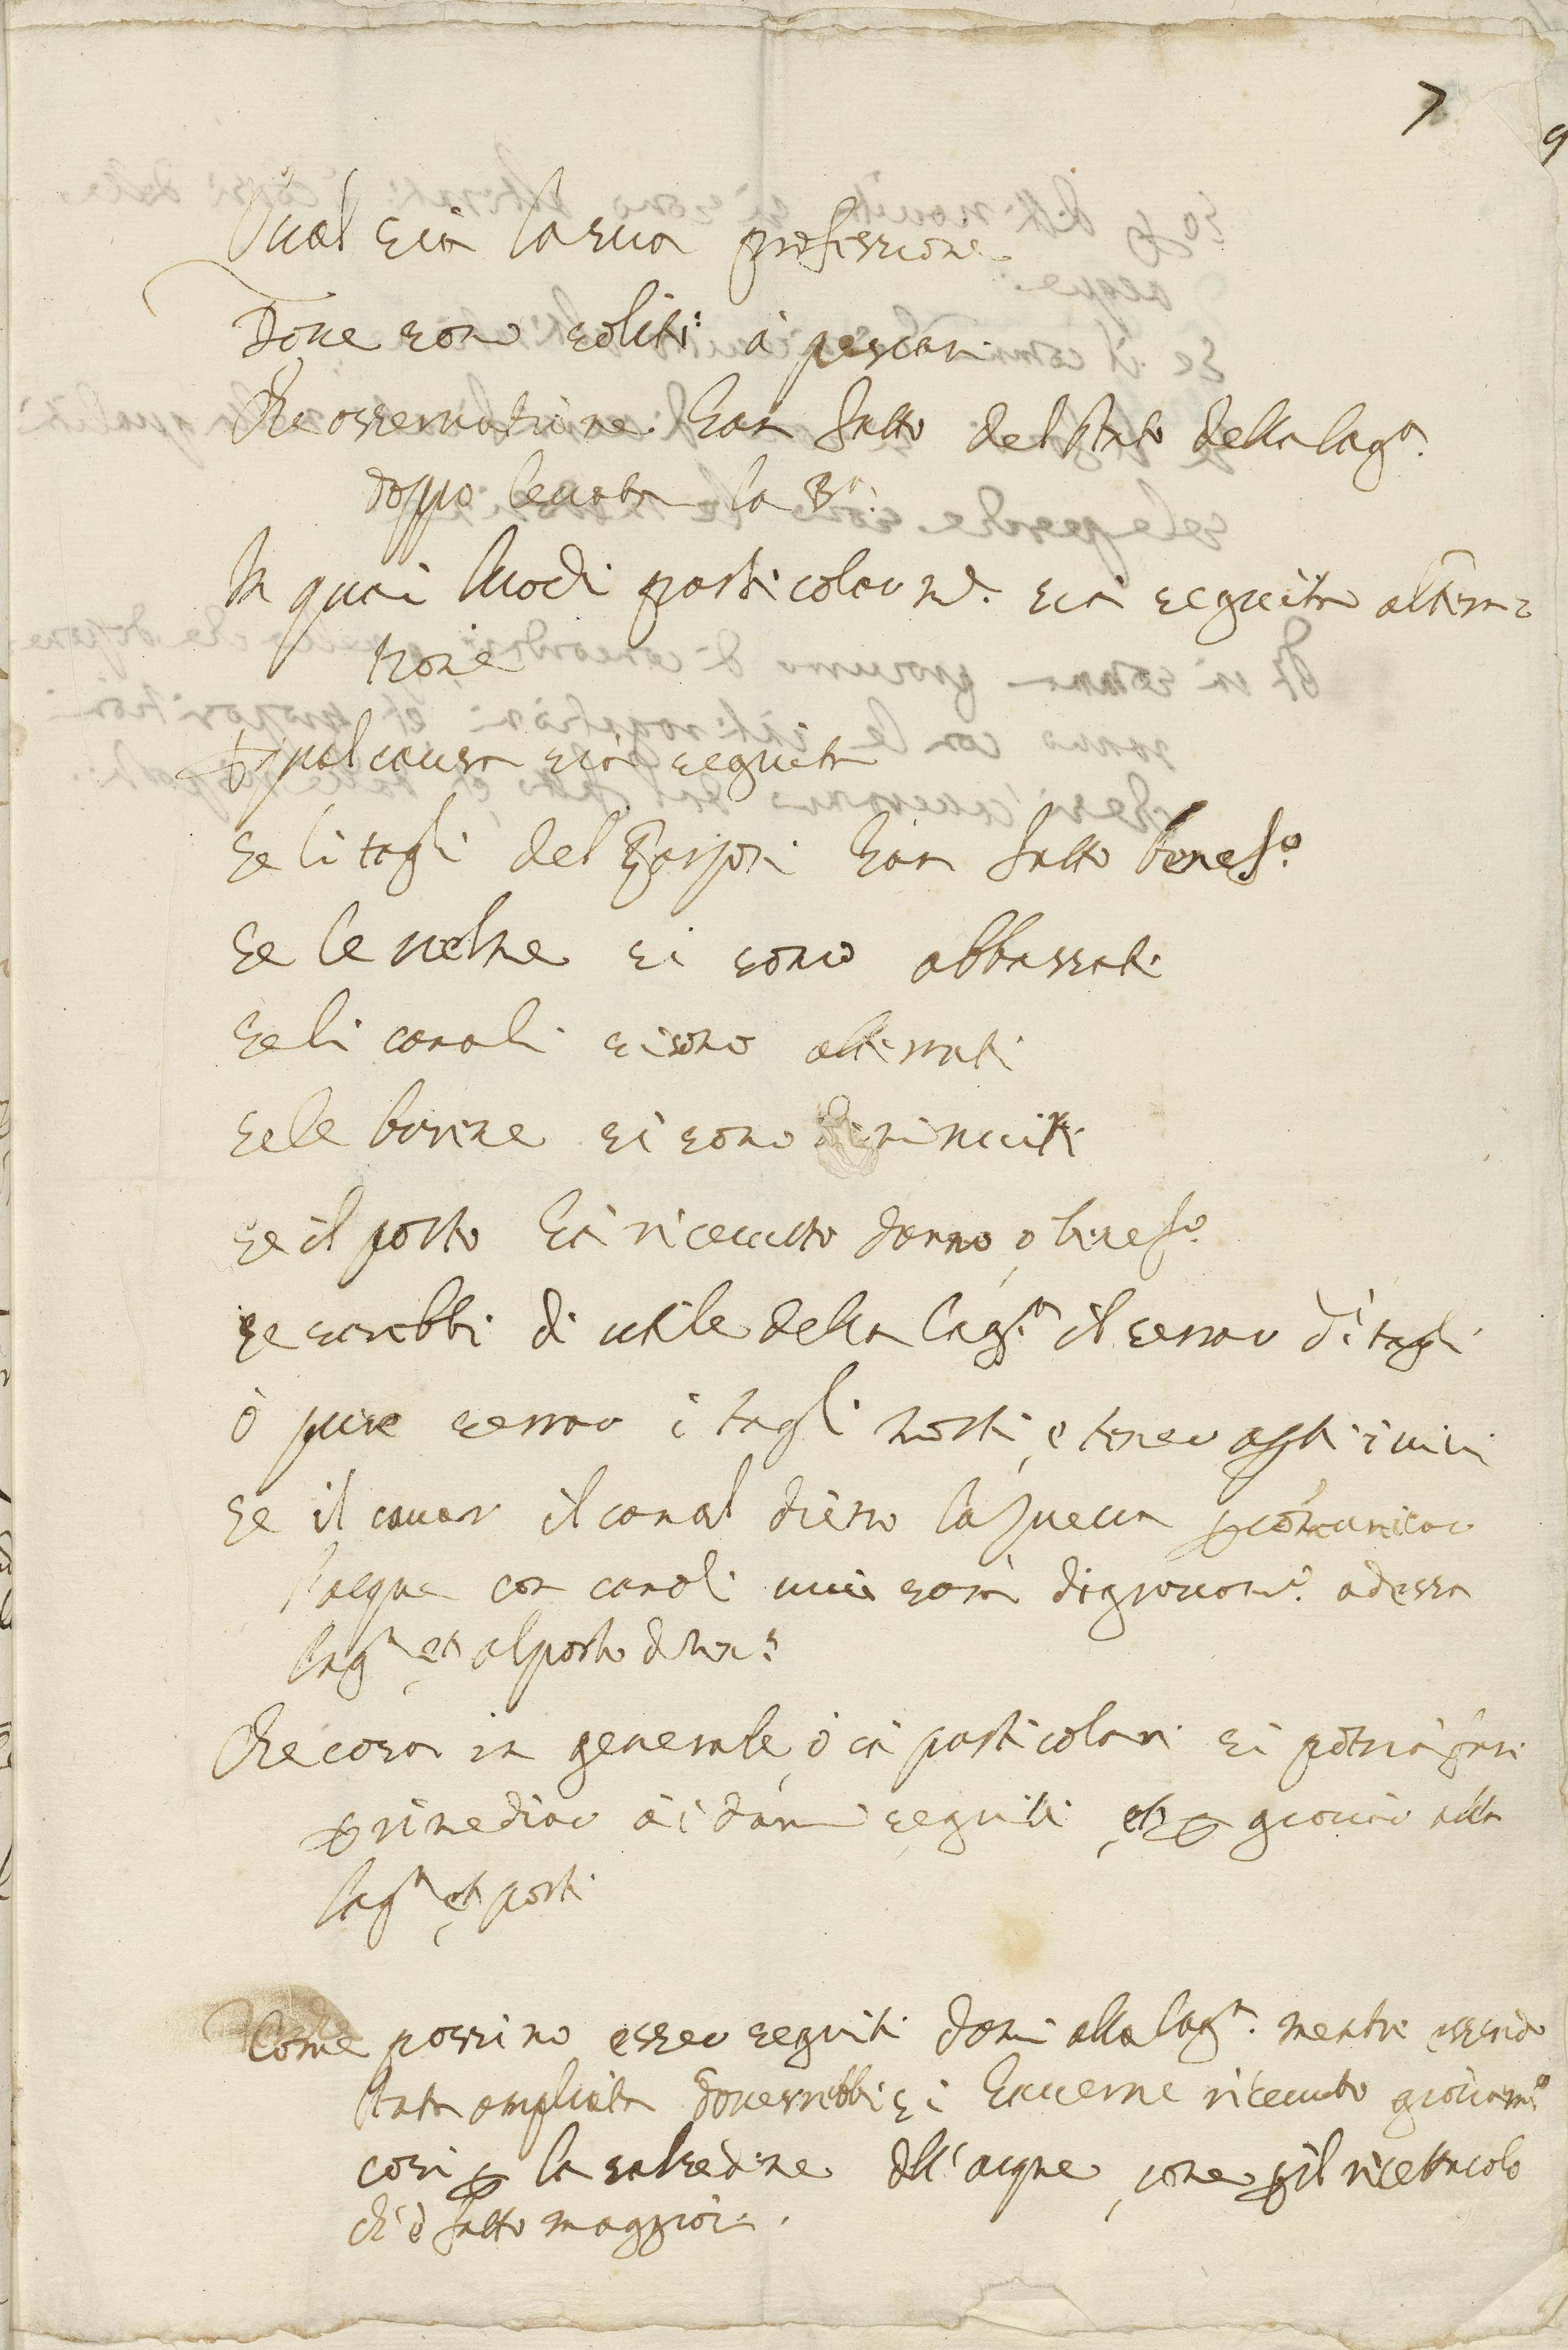 7
9
Qual sia la sua professione
Doue sono soliti à pescar
Che osseruatione han fatto del stato della lag.a
doppo leuata la
In quai luochi particolarm.e sia seguita altera=
tione
qual causa sia seguita
Se li tagli del han fatto benef.o
Se le uelme si sono abbassate
Se li canali si sono atterrati
Se le barene si sono diminuite
Se il porto hà riceuuto danno, o benef.o
Se sarebbe di utile della lag.a il serrar di tagli
ò pure serrar i tagli morti, e tener i uiui
Se il cauar il canal dietro la
l'acque con canali uiui sarà di giouam.o ad essa
lag.a et al porto
Che cosa in generale, ò in particolare si potria far
p rimediar ai danni seguiti, et p giouar alla
lag.a et porti
Come possino esser seguiti danni alla lag.a mentre essendo
stata ampliata douerrebbe si hauerne riceuuto giouam.o
cosi p la salsedine dell'acque, come p il ricettacolo
ch'è fatto maggior.